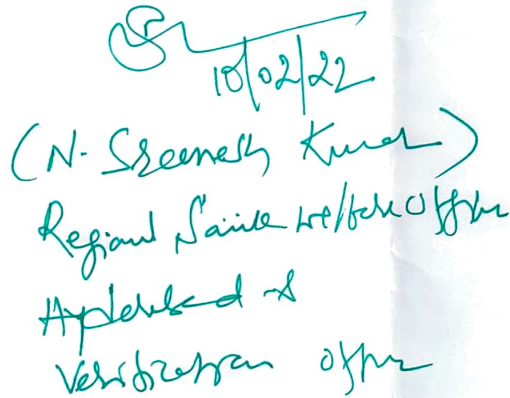 18/02/22
(N. Sreenesh Kumar)
Regional Sainik Welfare Officer
Hyderabad &
Verification Officer